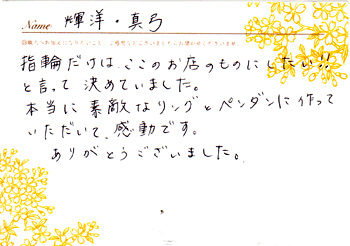 Name 輝洋・真弓
指輪だけは、ここのお店のものにしたい!!
と言って 決めていました。
本当に 素敵なリングとペンダントに作って
いただいて、感動です。
ありがとうございました。